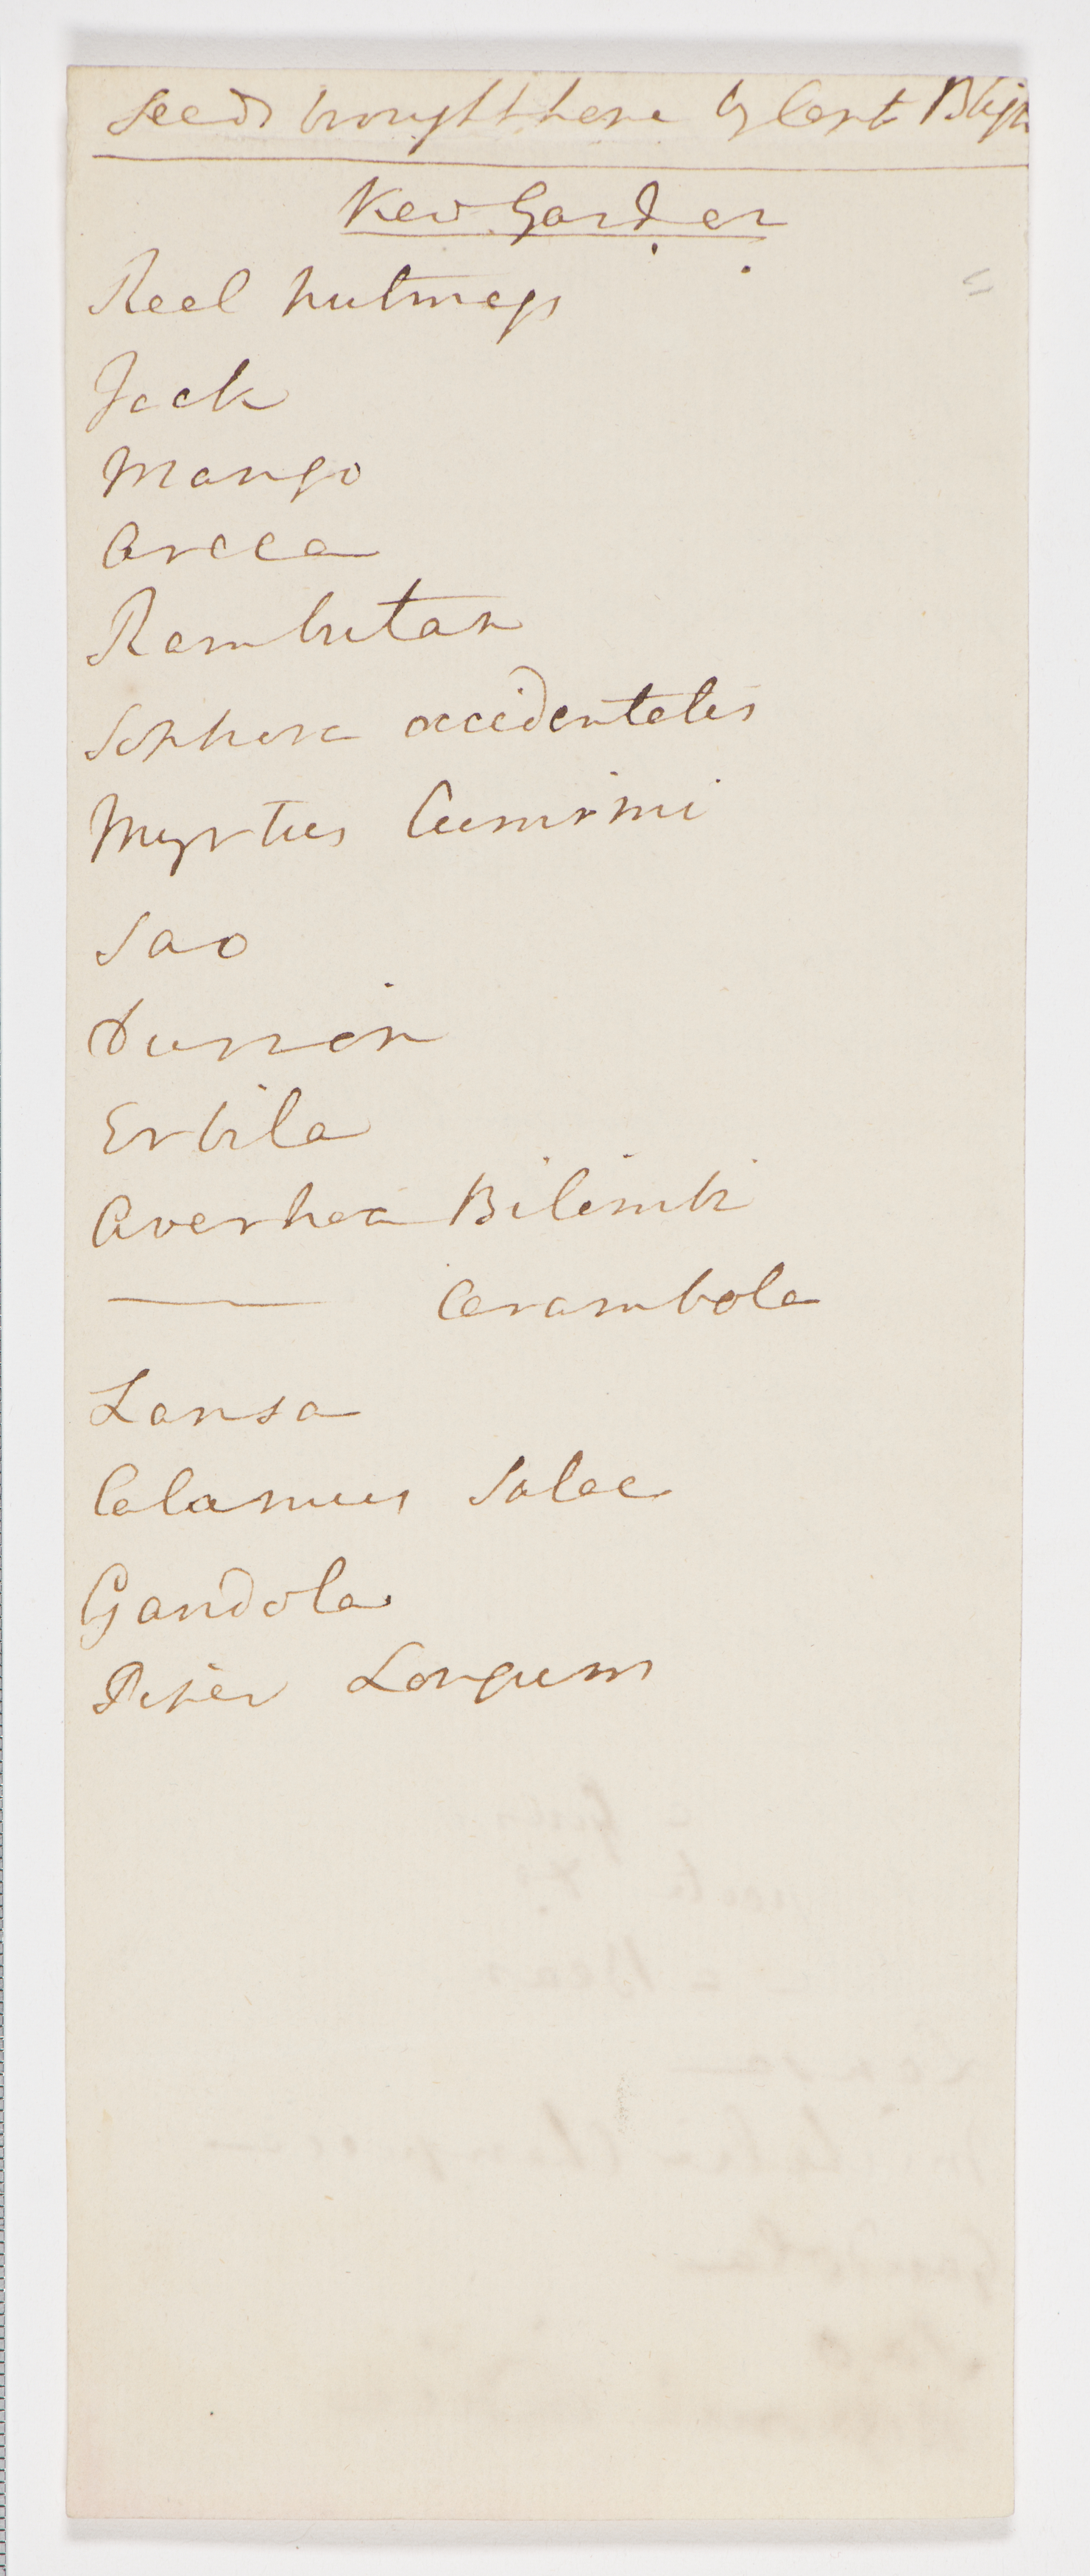 Seeds brought here by Capt Bligh
Kew Garden
Real nutmegs
Jack
Mango
Areca
Rambutan
Sophora occidentalis
Myrtus Cumimi
Sao
Durion
Erbila
Averhoa Bilimbi
—— Carambola
Lansa
Calamus Salac
Gandola
Piper Longum